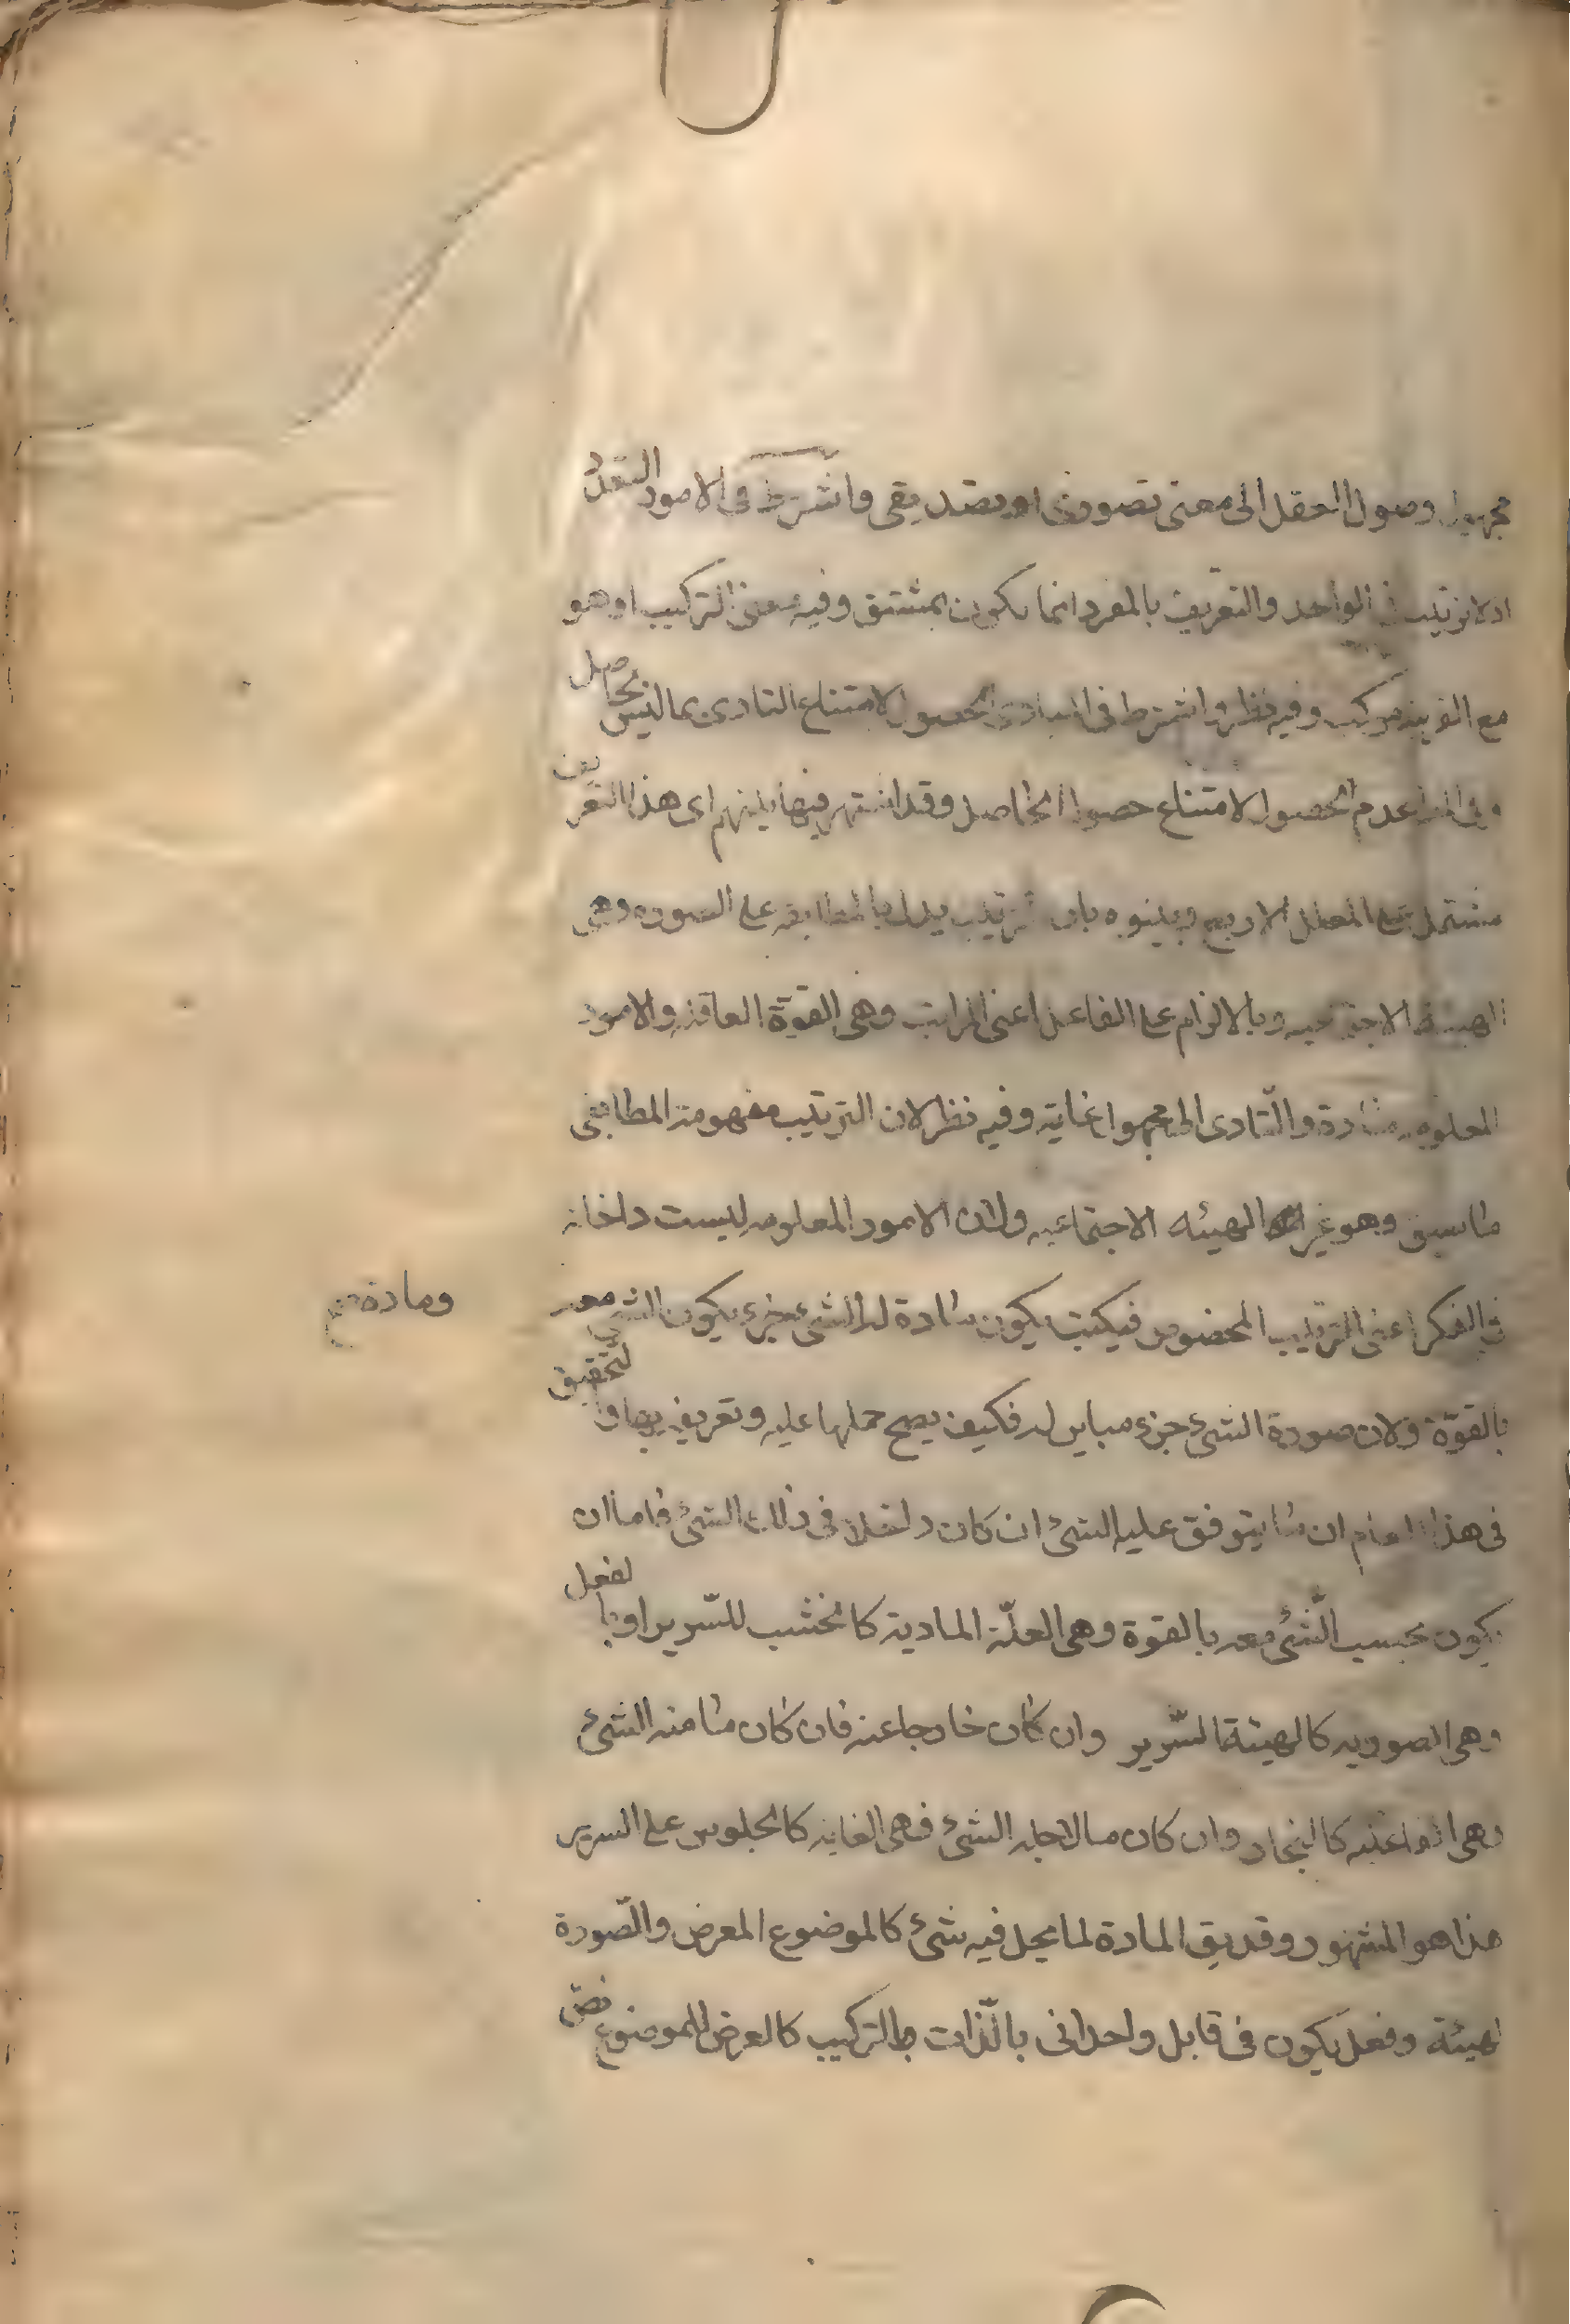 مجهول وصول العقل الى معنى تصورى او تصديقى واشترط فى الامور التعدد
اذ لا ترتيب فى الواحد والتعريف بالمفرد انما يكون بمشتق وفيه معنى التركيب او هو
مع القرينة مركب وفيه نظر واشترط فى المبادى الحصول لامتناع التادى بما ليس بحاصل
وفى المط عدم الحصول لامتناع حصول الحاصل وقد اشتهر فيما بينهم اى هذا التعريف
مشتمل على العلل الاربع وبينوه بان الترتيب يدل بالمطابقه على الصوره وهى
الهيئة الاجتماعيه وبالالزام على الفاعل اعنى المرتب وهى القوة العاقلة والامور
المعلومه مادة والتّادى الى مجهول غاية وفيه نظر لان الترتيب مفهومه المطابقى
ما سبق وهو غير الهيئه الاجتماعيه ولان الامور المعلومه ليست داخلة
فى الفكر اعنى الترتيب المخصوص فكيف يكون مادة له الشئ جزء يكون الشئ معه
ومادة
بالقوّة ولان صورة الشئ جزء مباين له فكيف يصح حملها عليه وتعريفه بها والتحقيق
فى هذا المقام ان ما يتوقف عليه الشئ ان كان داخلا فى ذلك الشئ فاما ان
يكون بحسب الشّئ معه بالقوة وهى العلّة المادية كالخشب للسّرير او بالفعل
وهى الصوريه كالهيئة السّرير وان كان خارجا عنه فان كان ما منه الشئ
وهى الفاعليه كالنجار وان كان ما لاجله الشئ فهى الغايه كالجلوس على السرير
هذا هو المشهور وقد يق المادة لما يحل فيه شئ كالموضوع العرض والصّورة
لهيئة وفعل يكون فى قابل واحدانى بالّذات او بالتركيب كالعرض للموضوع